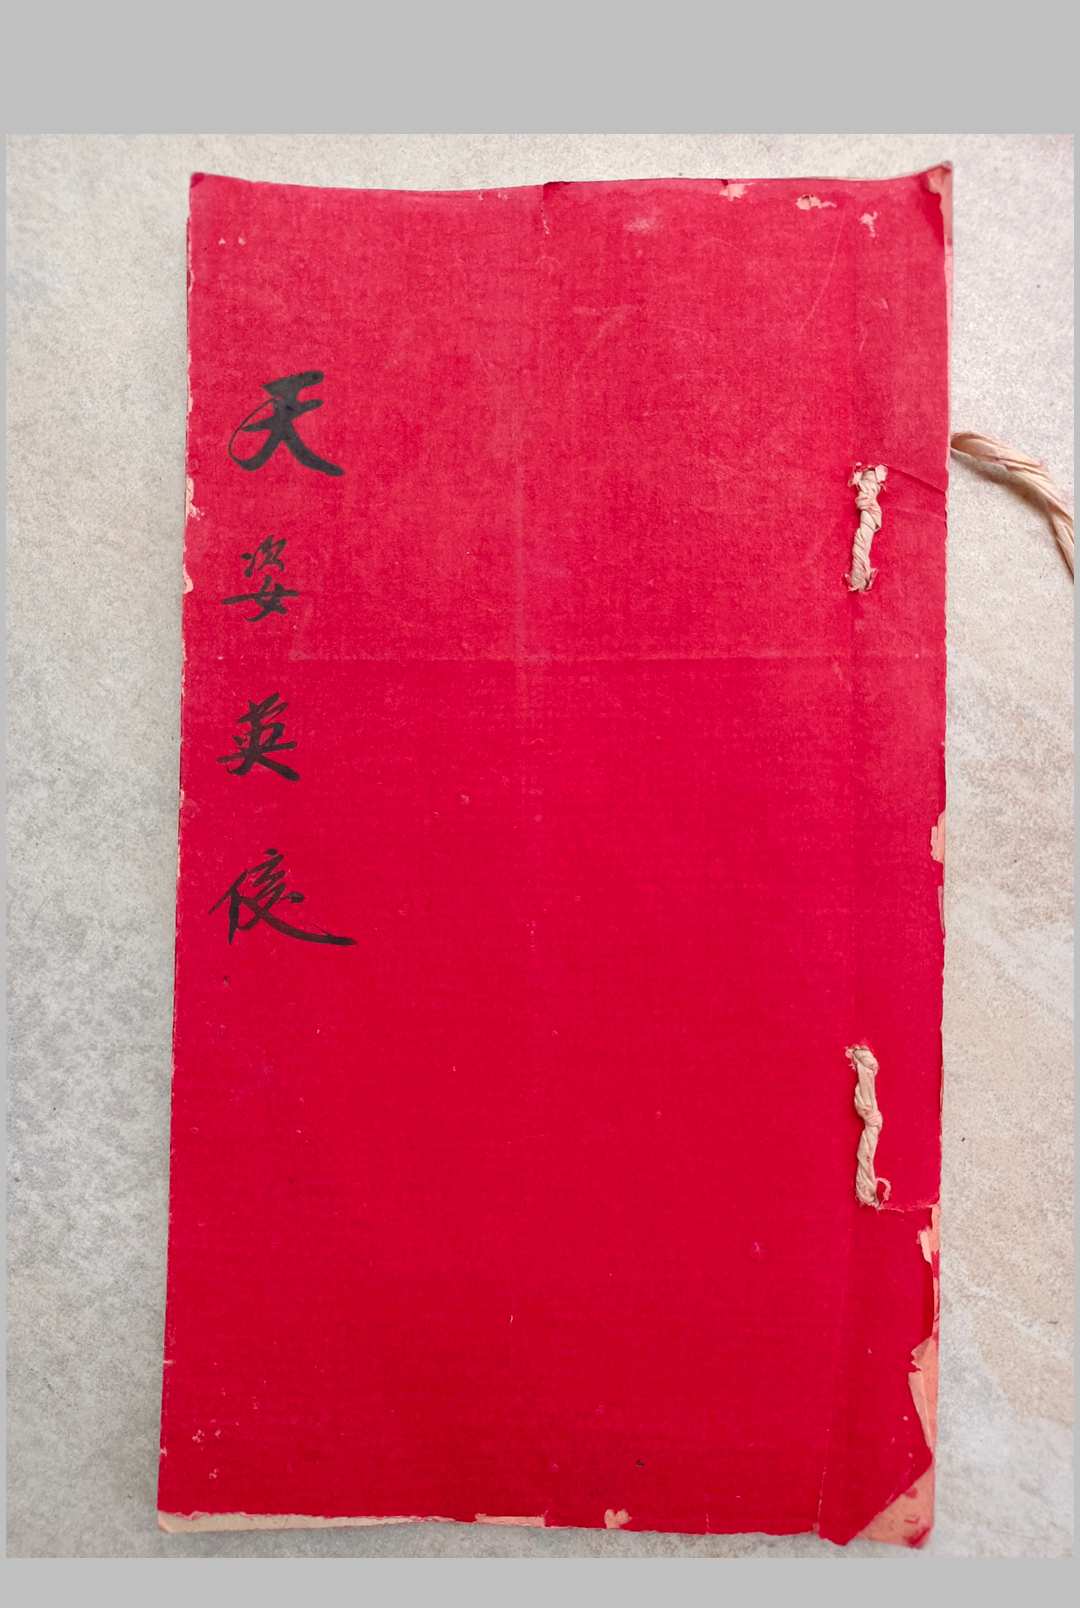 天姿英俊